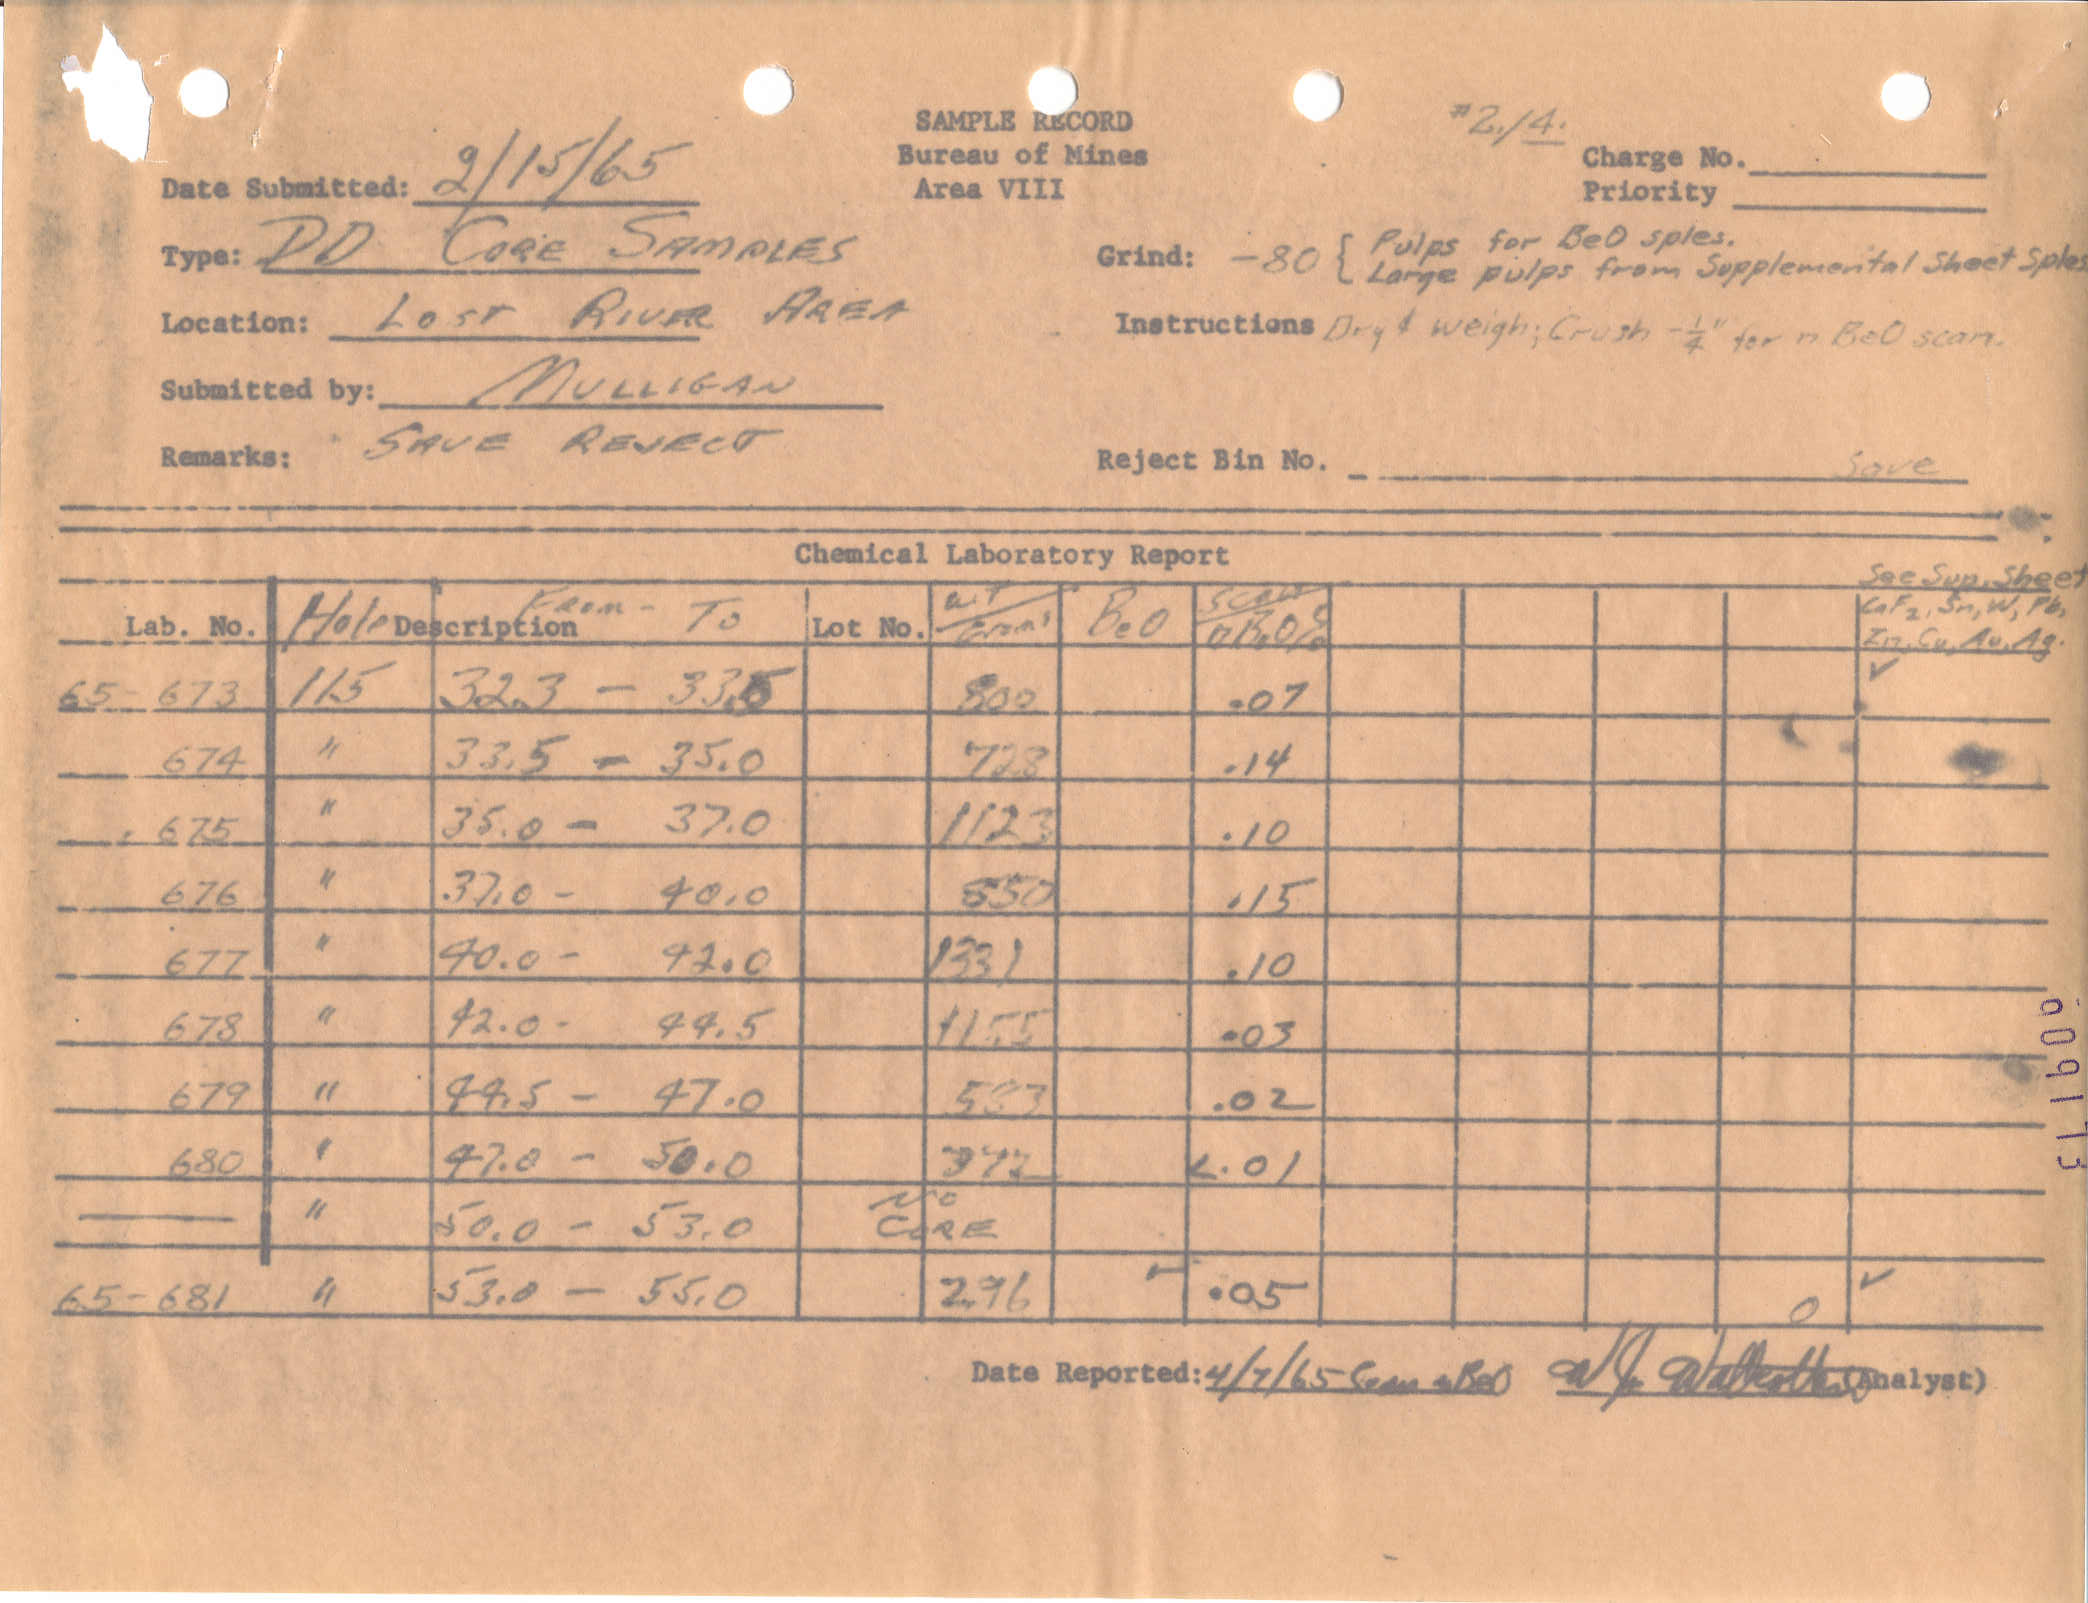 SAMPLE RECORD
Bureau of Mines
Area VIII
#2./4.
Charge No.
Priority
Date Submitted: 2/15/65
Type: DD CORE SAMPLES
Grind: -80 { Pulps for BeO sples.
Large pulps from Supplemental Sheet Sples
Location: LOST RIVER AREA
Instructions Dry & weigh; Crush -1/4" for n BeO scan.
Submitted by: MULLIGAN
Remarks: SAVE REJECT
Reject Bin No. Save
Chemical Laboratory Report
See Sup. Sheet
Lab. No. Hole Description From - To Lot No. WT Grams BeO Scan n BeO % CaF2, Sn, W, Pb,
Zn, Cu, Au, Ag.
65-673 115 32.3 - 33.5 800 .07 ✓
674 " 33.5 - 35.0 728 .14
675 " 35.0 - 37.0 1123 .10
676 " 37.0 - 40.0 550 .15
677 " 40.0 - 42.0 1331 .10
678 " 42.0 - 44.5 1155 .03
679 " 44.5 - 47.0 .02
680 " 47.0 - 50.0 <.01
" 50.0 - 53.0 NO CORE
65-681 " 53.0 - 55.0 296 ✓ .05 0 ✓
Date Reported: 4/7/65 Scan nBeO (Analyst)